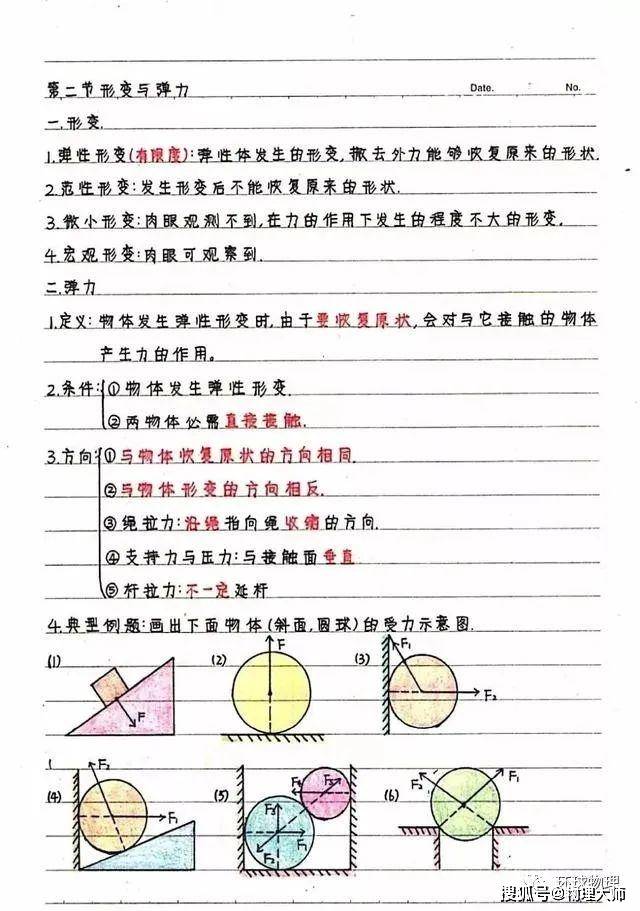 第二节形变与弹力
Date.
No.
一.形变.
1.弹性形变(有限度):弹性体发生的形变,撤去外力能够恢复原来的形状.
2.范性形变:发生形变后不能恢复原来的形状.
3.微小形变:肉眼观测不到,在力的作用下发生的程度不大的形变.
4.宏观形变:肉眼可观察到.
二.弹力
1.定义:物体发生弹性形变时,由于要恢复原状,会对与它接触的物体
产生力的作用。
2.条件:①物体发生弹性形变.
②两物体必需直接接触.
3.方向:①与物体恢复原状的方向相同.
②与物体形变的方向相反.
③绳拉力:沿绳指向绳收缩的方向.
④支持力与压力:与接触面垂直
⑤杆拉力:不一定延杆
4.典型例题:画出下面物体(斜面,圆球)的受力示意图.
(1) F
(2) F
(3) F₁ F₂
(4) F₂ F₁
(5) F₄ F₅ F₃ F₁ F₂
(6) F₂ F₁
环球物理
搜狐号@物理大师